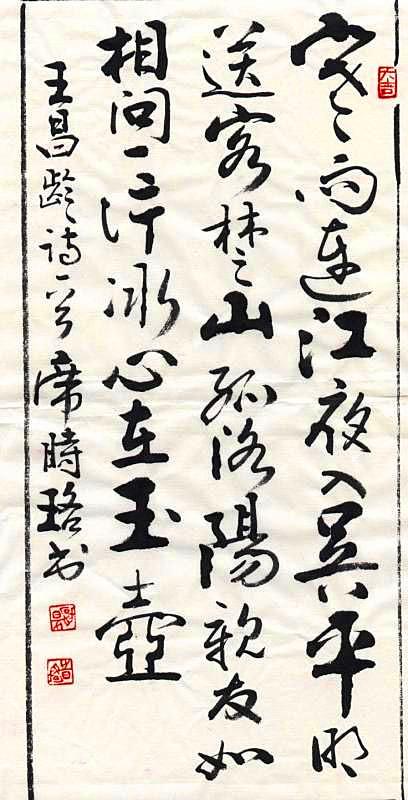 寒雨連江夜入吳平明
送客楚山孤洛陽親友如
相問一片冰心在玉壺
王昌齡詩一首席時珞书